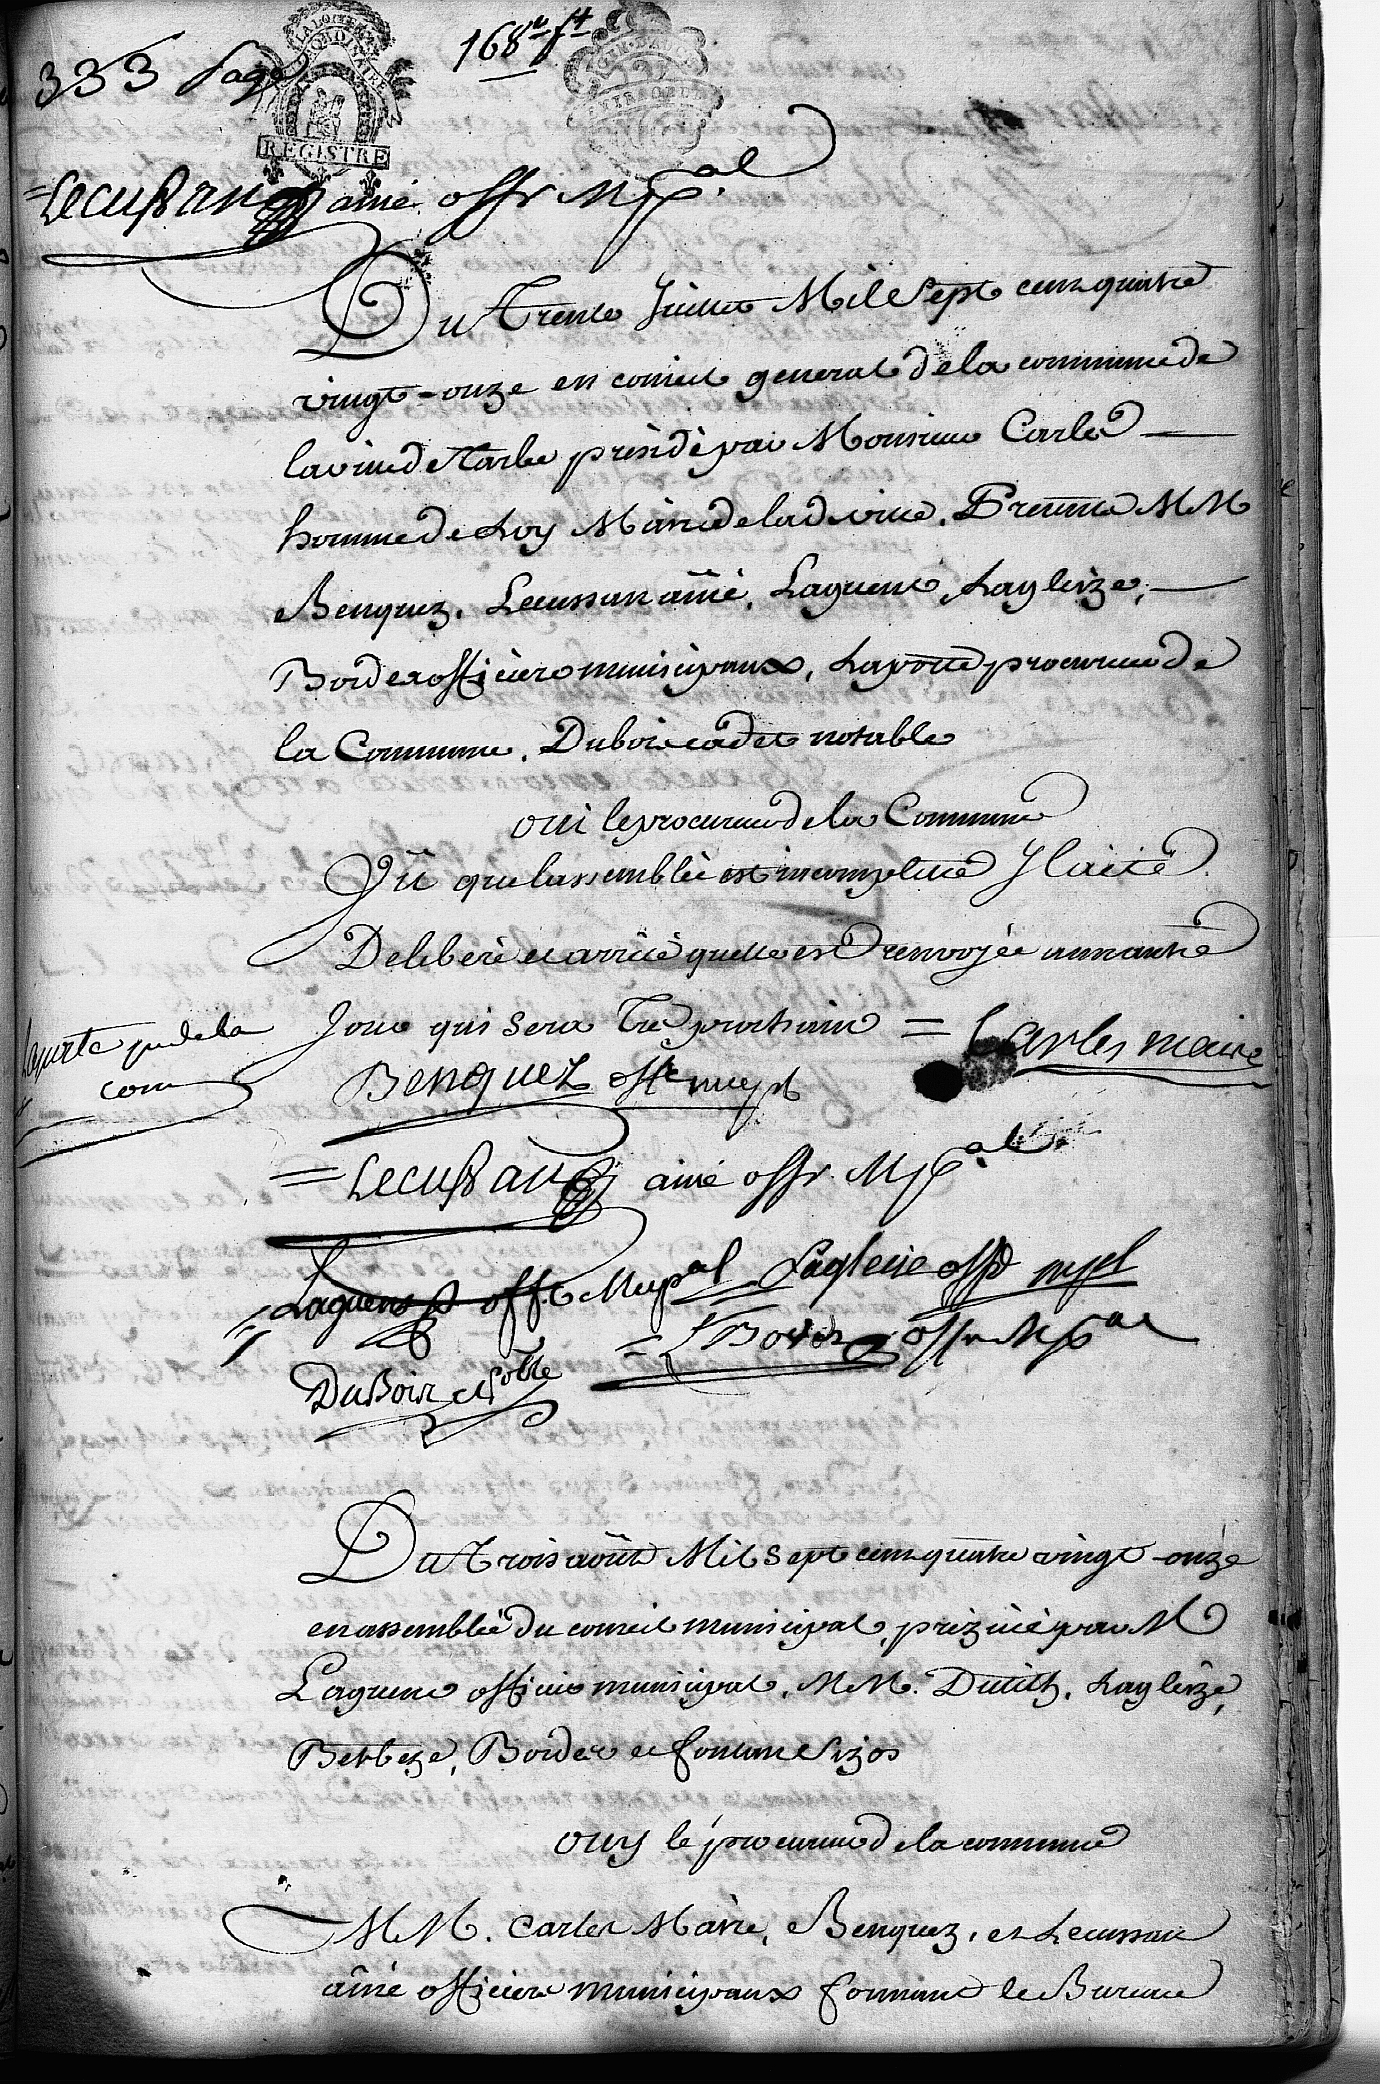 333 page
168e ft
LA LOI ET LE ROI
ORDINAIRE
REGISTRE
= Lecussan ainé offr Mpal
Du Trente Juillet Mil Sept cens quatre
vingt-onze en conseil general de la commune de
la ville de Tarbe présidé par Monsieur Carles
homme de Loy Maire de lad ville. Presents MM
Benquez, Lecussan aîné, Laguens, Lagleize,
Bordes officiers municipaux, Laporte procureur de
la Commune. Dubois cadet notable
oui le procureur de la Commune
Vû que lassemblée est incomplette Il a été
Deliberé et arreté quelle est renvoyée aunautre
Jour qui sera Tres prochain = Carles maire
Laporte pr de la
com
Benquez offe mupl
= Lecussan ainé offr. Mpal.
Laguens offe Mupal Lagleize offr mpl
= Bordes offr Mpal
DuBois c noble
Du Trois août Mil Sept cens quatre vingt-onze
en assemblée du conseil municipal, prezidé par M
Laguens officier municipal, MM. Dutilh, Lagleize,
Berbeze, Bordes et fontan Sizos
ouy le procureur de la commune
MM. Carles Maire, Benquez, et Lecussan
aîné officiers municipaux formant le Bureau